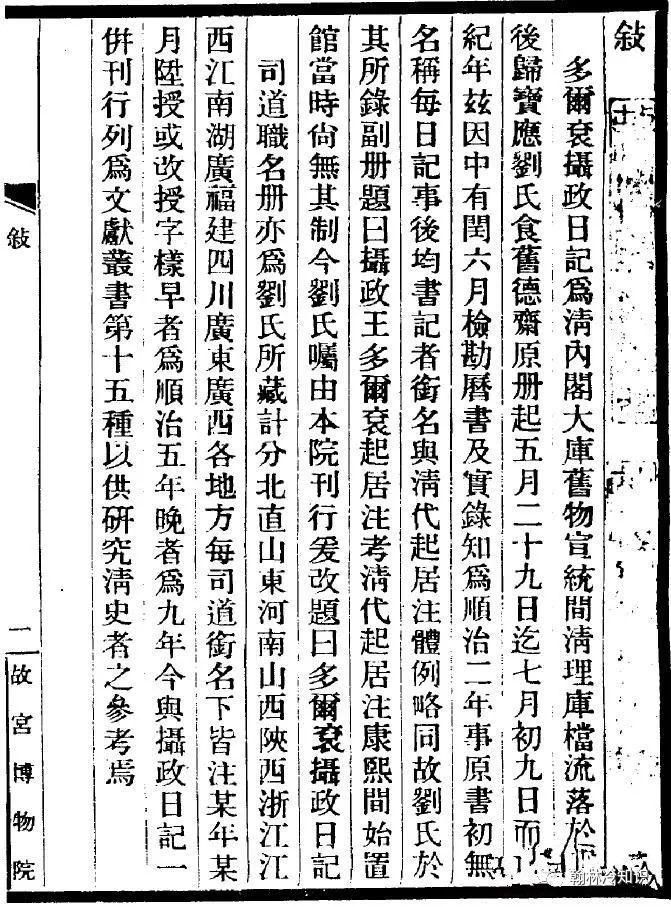 敍
多爾袞攝政日記爲淸內閣大庫舊物宣統間淸理庫檔流落於
後歸寶應劉氏食舊德齋原册起五月二十九日迄七月初九日而
紀年茲因中有閏六月檢勘曆書及實錄知爲順治二年事原書初無
名稱每日記事後均書記者銜名與淸代起居注體例略同故劉氏於
其所錄副册題曰攝政王多爾袞起居注考淸代起居注康熙間始置
館當時尙無其制今劉氏囑由本院刊行爰改題曰多爾袞攝政日記
司道職名册亦爲劉氏所藏計分北直山東河南山西陝西浙江江
西江南湖廣福建四川廣東廣西各地方每司道銜名下皆注某年某
月陞授或改授字樣早者爲順治五年晚者爲九年今與攝政日記一
倂刊行列爲文獻叢書第十五種以供硏究淸史者之參考焉
敍
二
故宮博物院
翰林冷知識